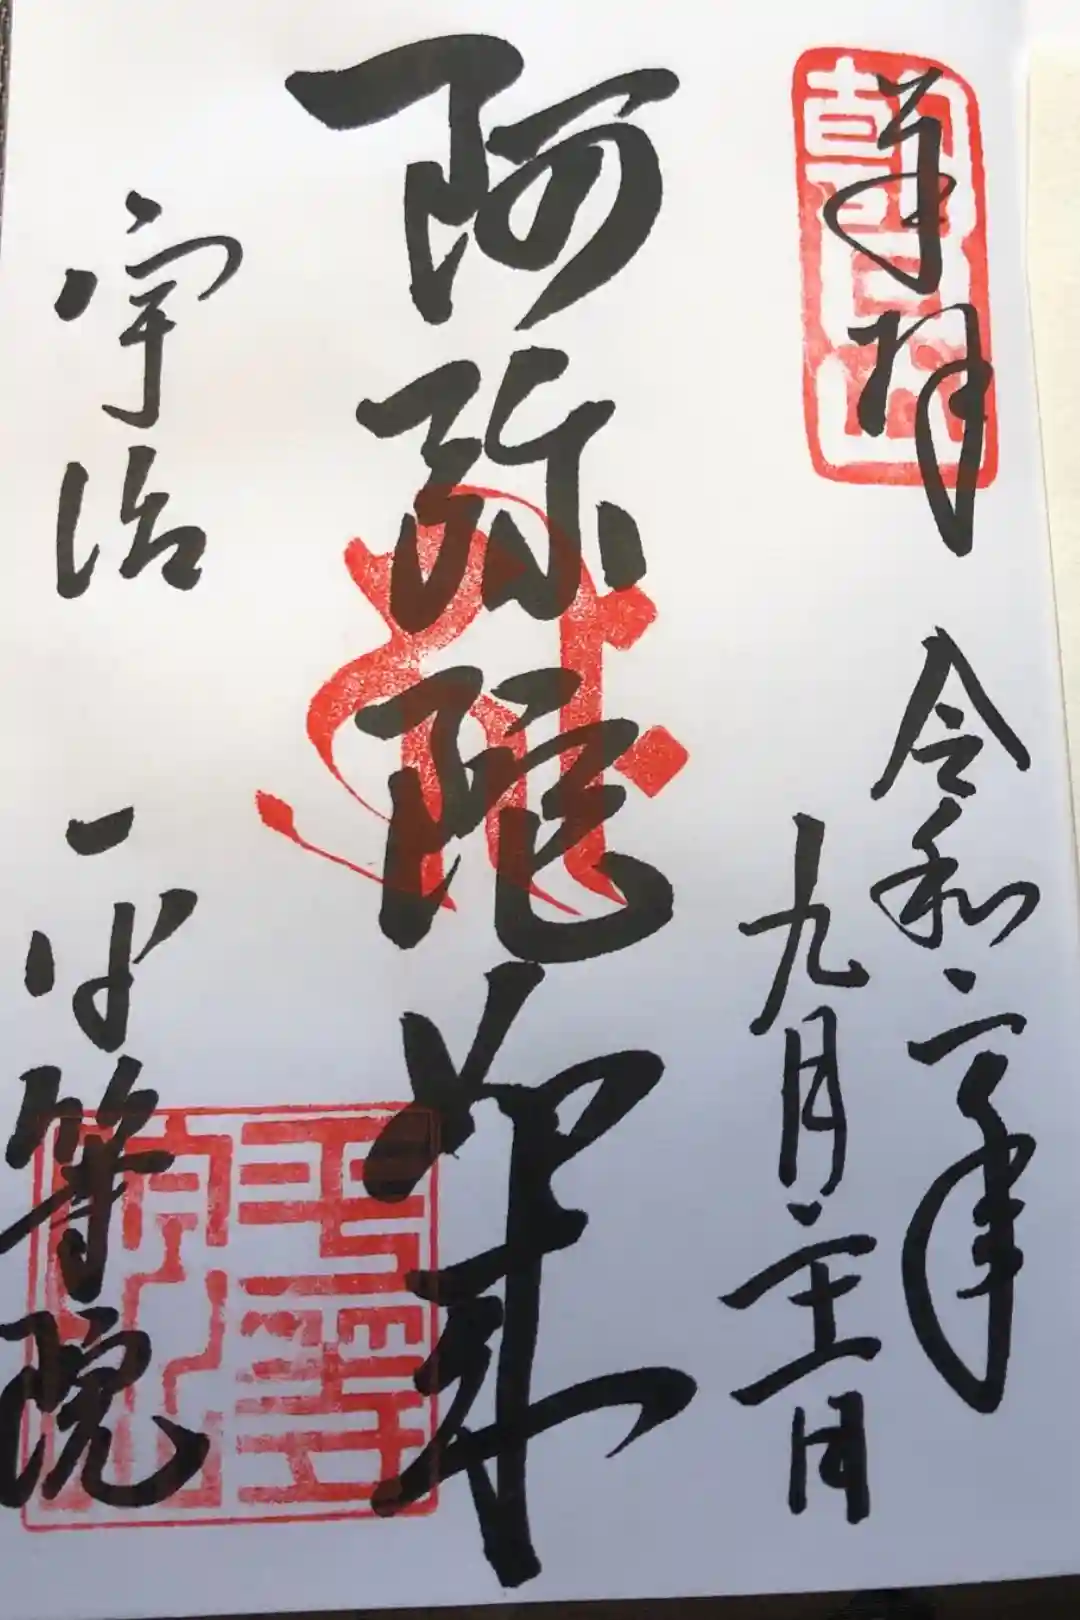 奉拝
朝日山
令和二年
九月二十一日
阿弥陀如来
宇治
平等院